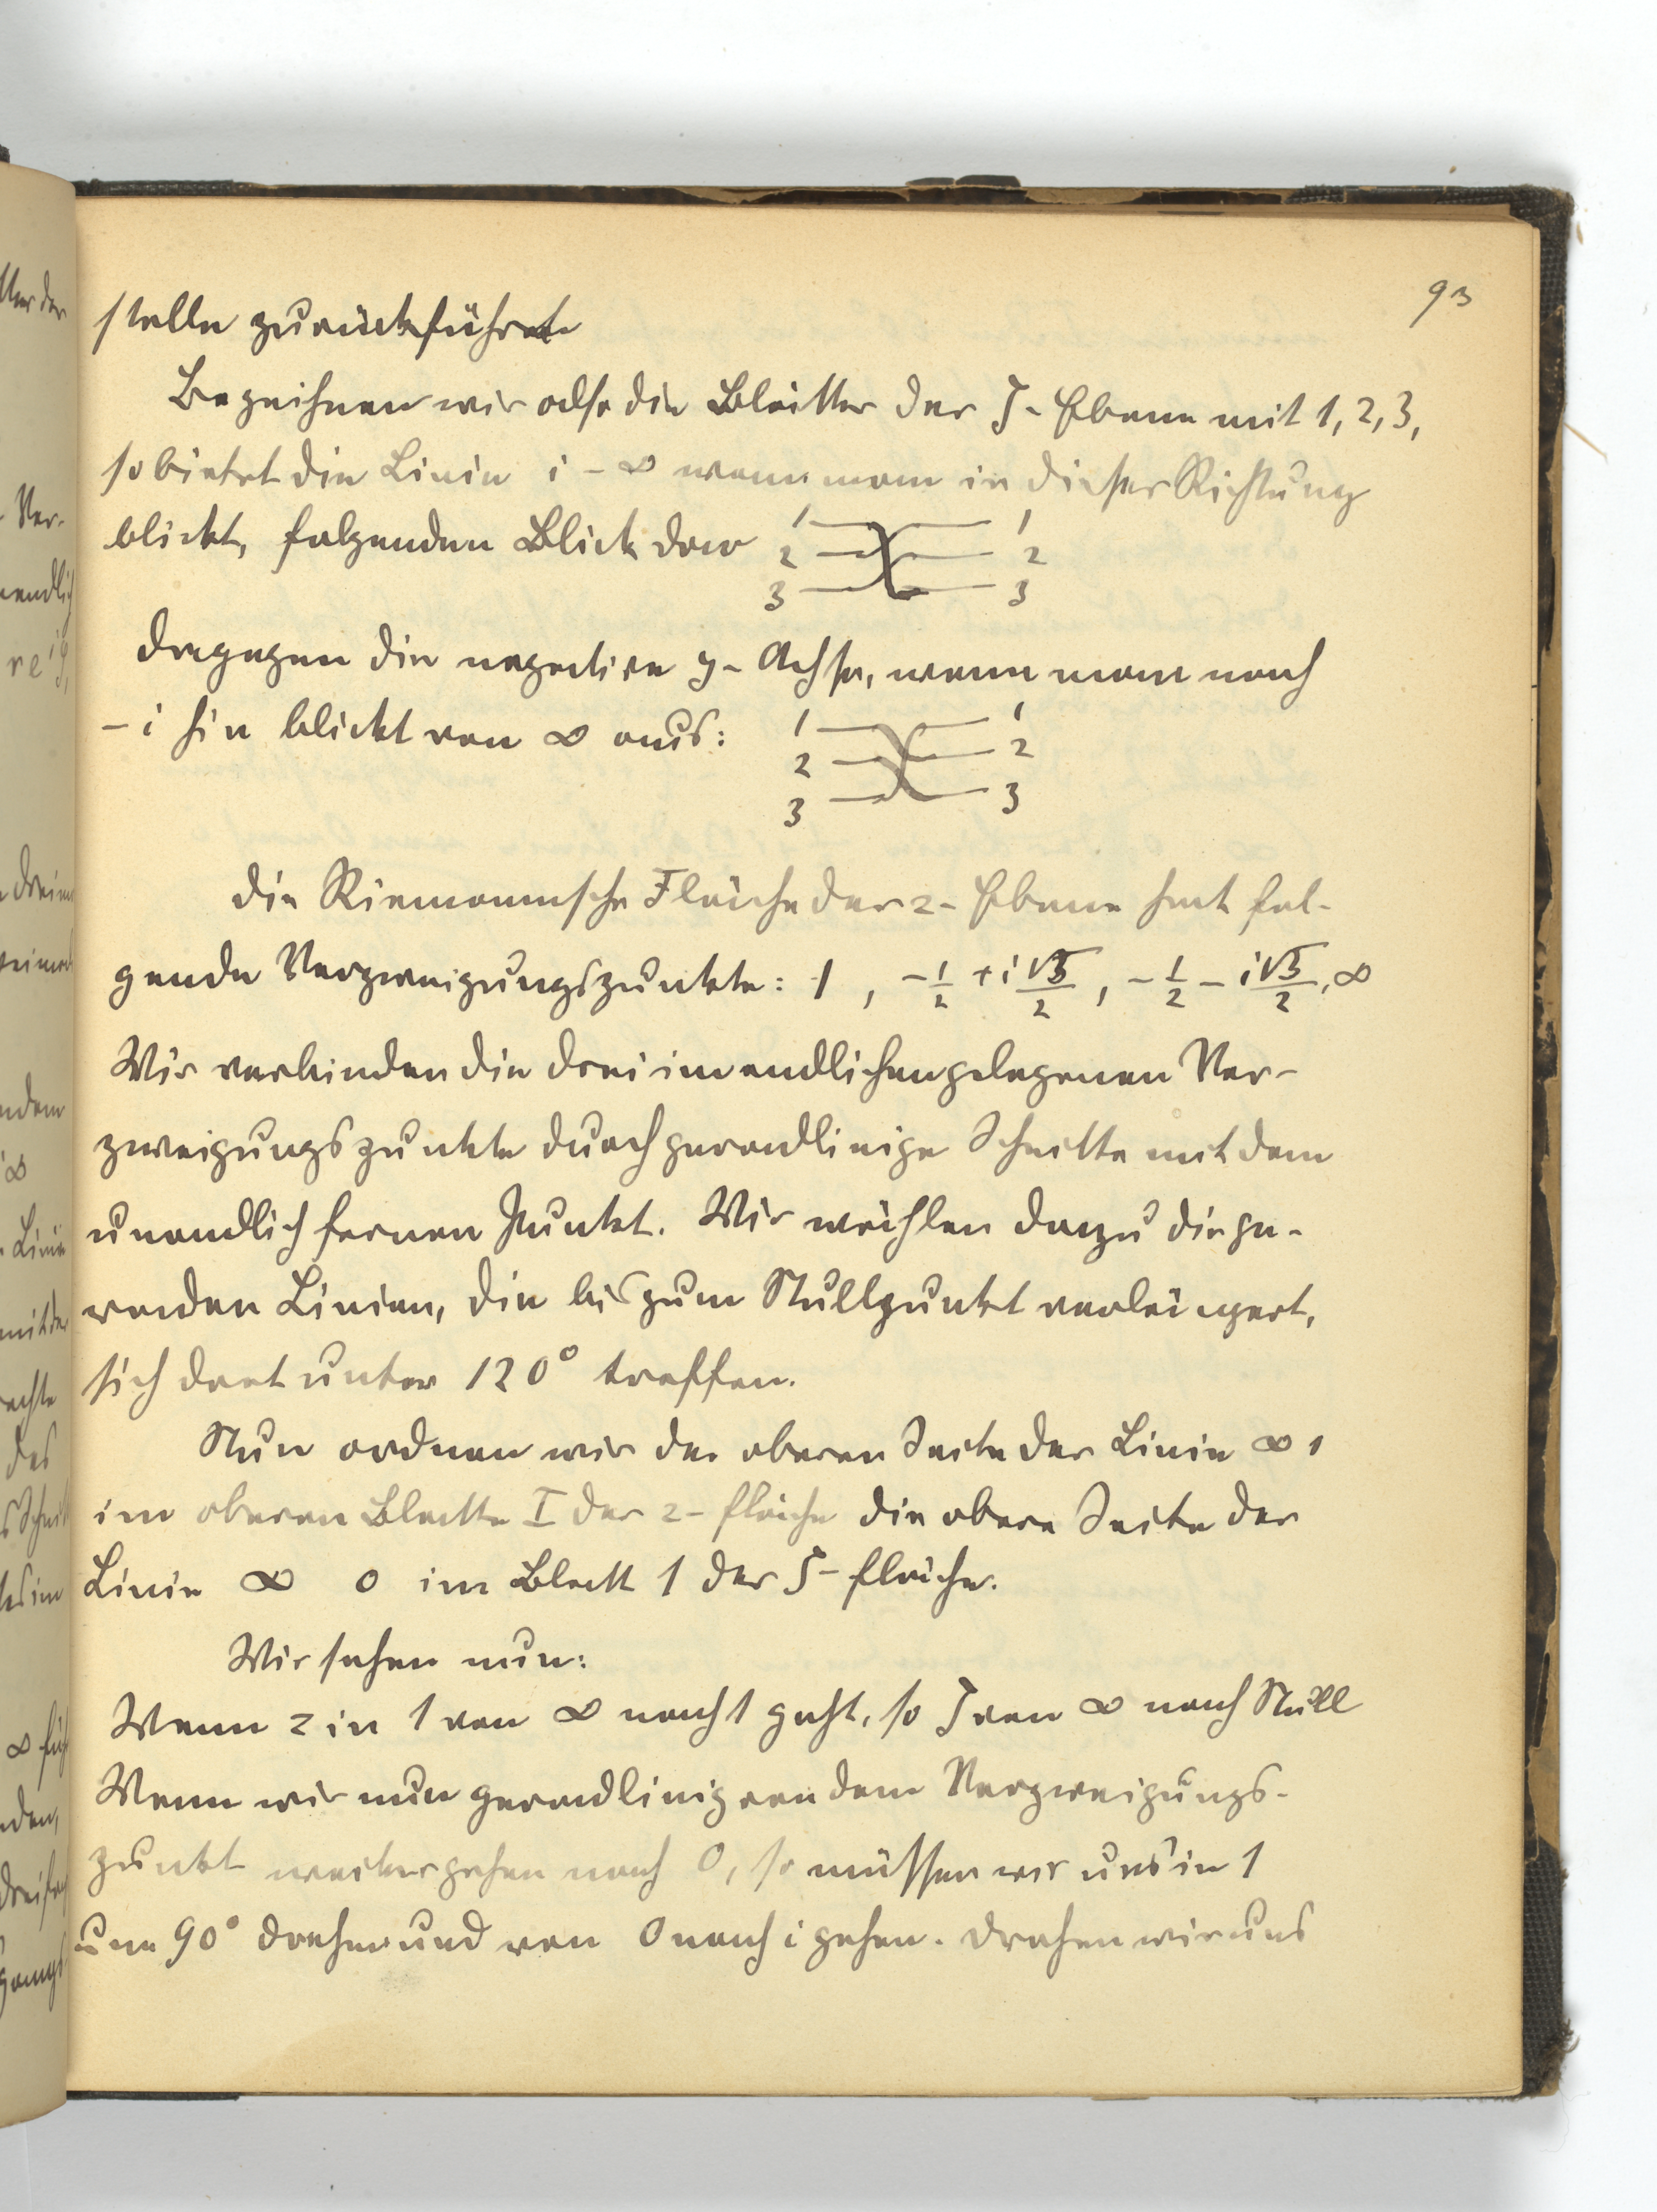 93
stelle zurückführt
Bezeichnen wir also die Blätter der ζ-Ebene mit 1, 2, 3,
so bietet die Linie i - ∞ wenn man in dieser Richtung
blickt, folgenden Blick dar 1 1
2 2
3 3
dagegen die negative y-Achse, wenn man nach
- i hin blickt von ∞ aus: 1 1
2 2
3 3
Die Riemannsche Fläche der z-Ebene hat fol-
gende Verzweigungspunkte: 1, -1/2 + i√3/2, -1/2 - i√3/2, ∞
Wir verbinden die drei im endlichen gelegenen Ver-
zweigungspunkte durch geradlinige Schnitte mit dem
unendlich fernen Punkt. Wir wählen dazu die ge-
raden Linien, die bis zum Nullpunkt verlängert,
sich dort unter 120° treffen.
Nun ordnen wir der oberen Seite der Linie ∞ 1
im oberen Blatte I der z-fläche die obere Seite der
Linie ∞ 0 im Blatt 1 der ζ-fläche.
Wir sehen nun:
Wenn z in 1 von ∞ nach 1 geht, so ζ von ∞ nach Null
Wenn wir nun geradlinig von dem Verzweigungs-
punkt weitergehen nach 0, so müssen wir uns in 1
um 90° drehen und von 0 nach i gehen. Drehen wir uns